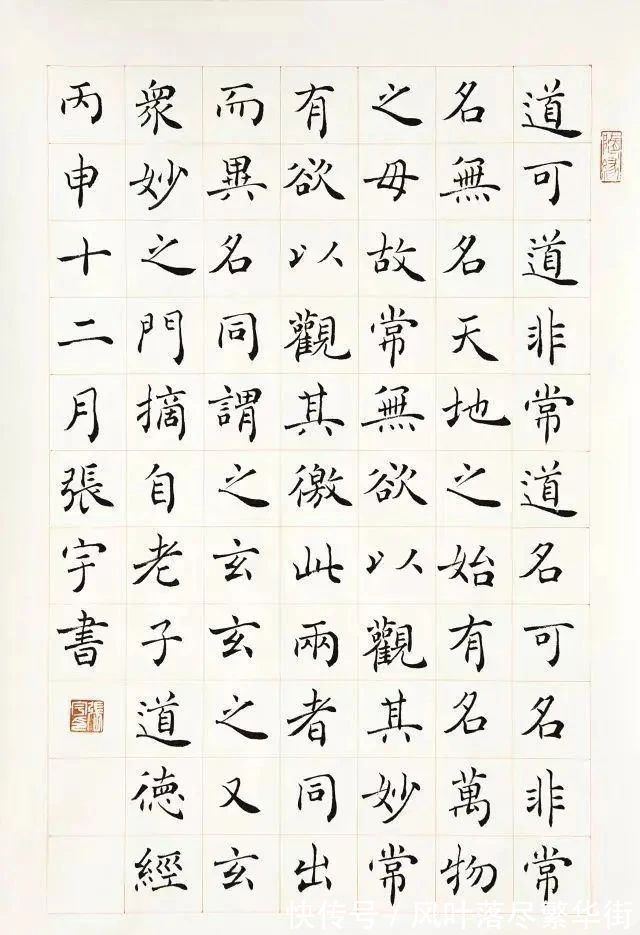 道可道非常道名可名非常
名無名天地之始有名萬物
之母故常無欲以觀其妙常
有欲以觀其徼此兩者同出
而異名同謂之玄玄之又玄
眾妙之門摘自老子道德經
丙申十二月張宇書
快传号 / 风叶落尽繁华街